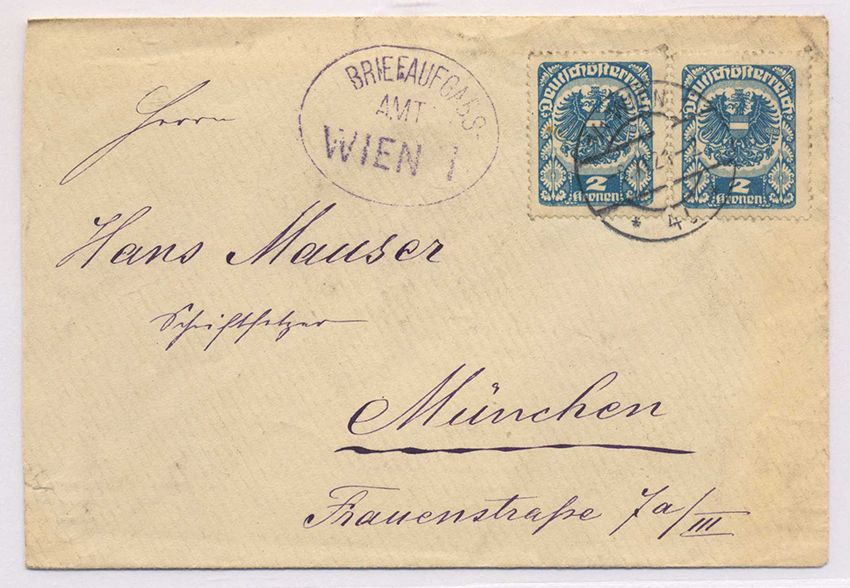 BRIEFAUFGABS-
AMT
WIEN 1
Deutschösterreich
2
Kronen
Deutschösterreich
2
Kronen
* 4
Herrn
Hans Mauser
Schriftsetzer
München
Frauenstraße 7a/III